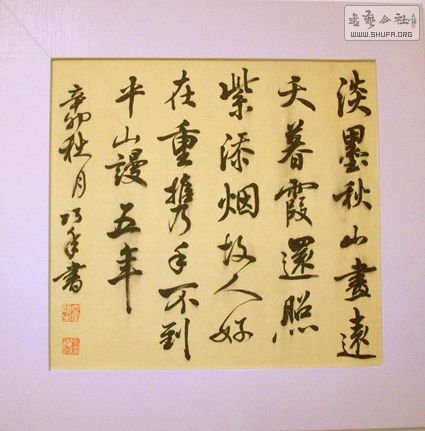 書藝公社
WWW.SHUFA.ORG
淡墨秋山畫遠
天暮霞還照
紫添烟故人好
在重攜手不到
平山謾五年
辛卯秋月書